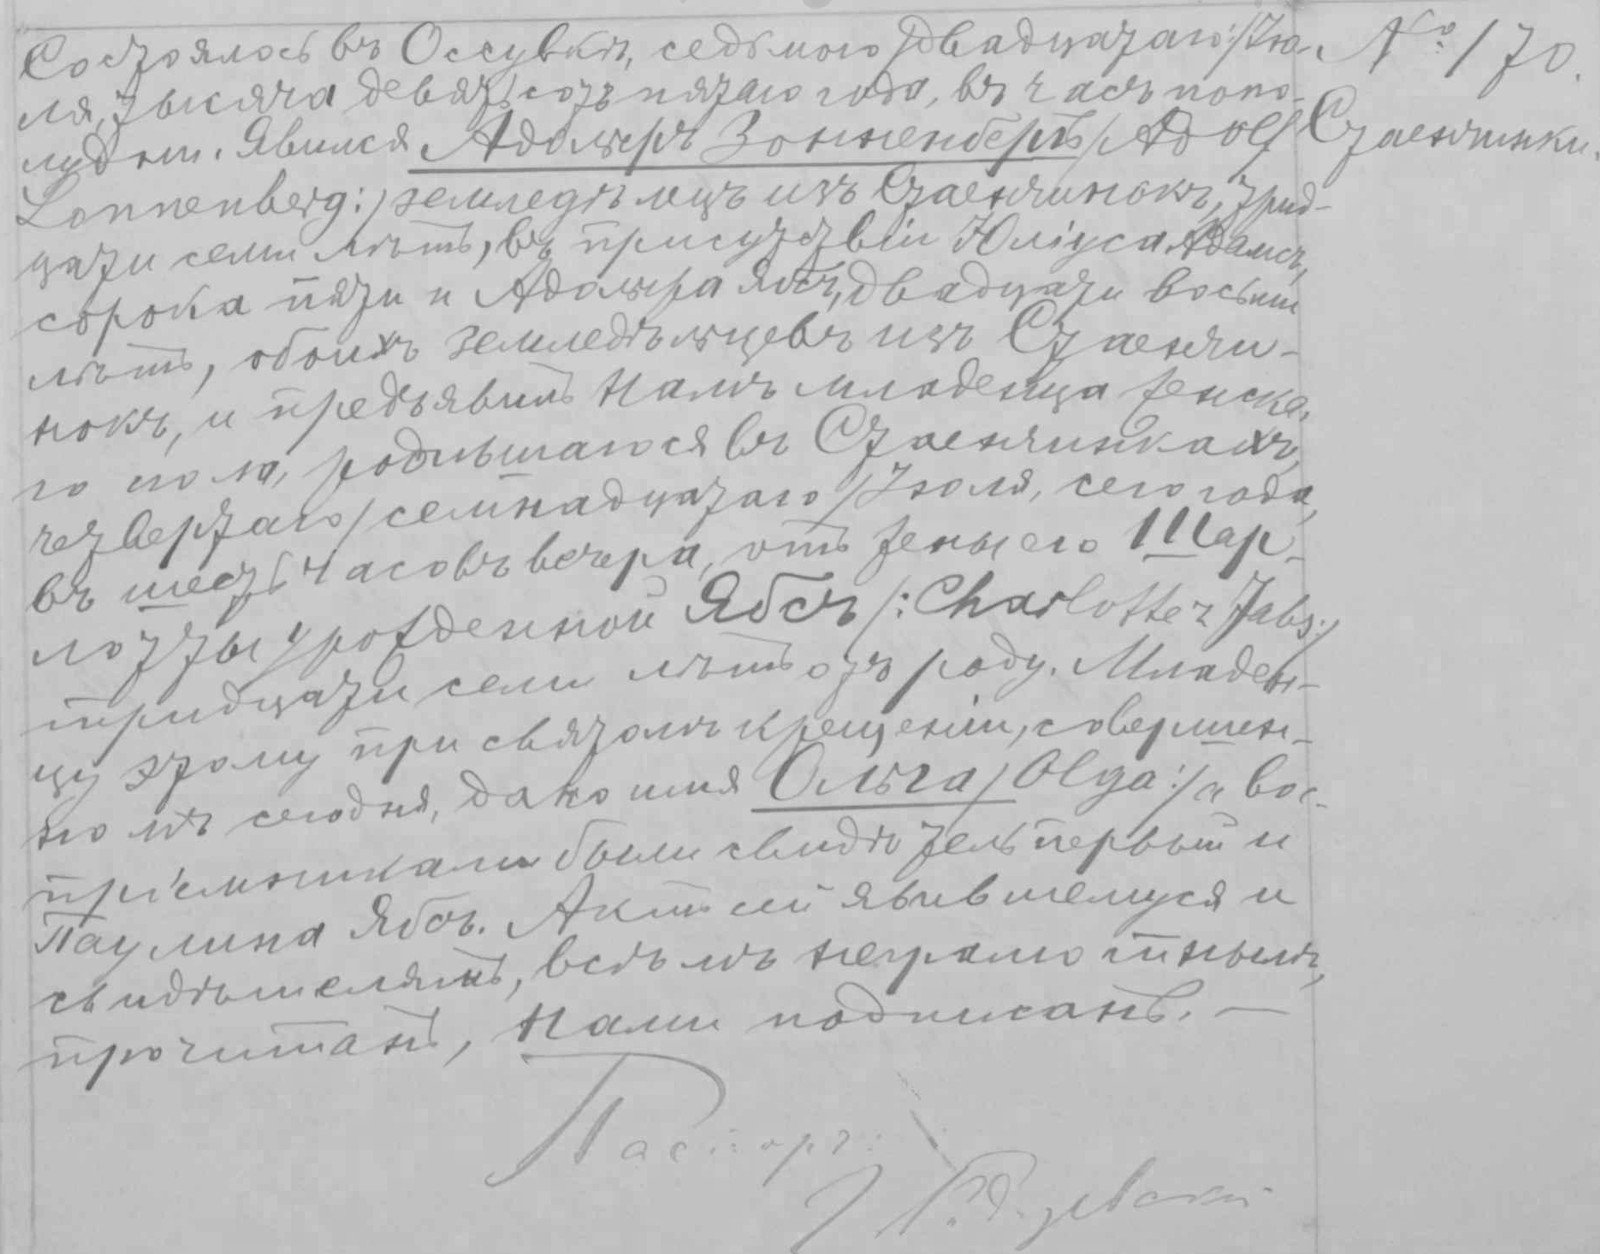 № 170.
Стаенчинки.
Состоялось въ Оссувкѣ, седьмого /двадцатаго:/ Iю-
ля, тысяча девятьсотъ пятаго года, въ часъ попо-
лудни. Явился Адольфъ Зонненбергъ /Adolf
Sonnenberg:/ земледѣлецъ изъ Стаенчинокъ, трид-
цати семи лѣтъ, въ присутствіи Юліуса Адамъ,
сорока пяти и Адольфа Ябсъ, двадцати восьми
лѣтъ, обоихъ земледѣльцевъ изъ Стаенчи-
нокъ, и предъявилъ намъ младенца женска-
го пола, родившагося въ Стаенчинкахъ,
четвертаго /семнадцатаго/ Iюля, сего года,
въ шесть часовъ вечера, отъ жены его Шар-
лотты урожденной Ябсъ /:Charlotte z Jabs:/
тридцати семи лѣтъ отъ роду. Младен-
цу этому при святомъ крещеніи, совершен-
номъ сегодня, дано имя Ольга /Olga:/ а вос-
пріемниками были свидѣтель первый и
Паулина Ябсъ. Актъ сей явившемуся и
свидѣтелямъ, всѣмъ неграмотнымъ,
прочитанъ, Нами подписанъ. —
Пасторъ: